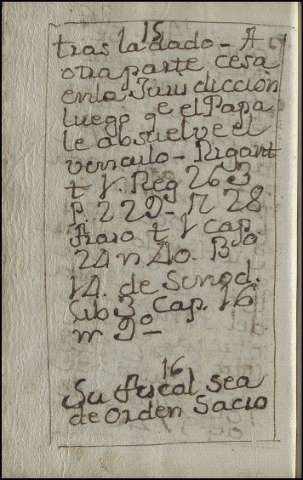 15
tras ladado - A
otra parte cesa
en la Jurisdiccion
luego qe el Papa
le absuelve el
vernculo - Rigant
t V. Reg 263
P. 229 - N 28
Fraso t V cap.
24 n 40. Bdo
14. de Sinod.
Lib 3 Cap. 16
n 9º
16
Su fiscal sea
de Orden Sacro